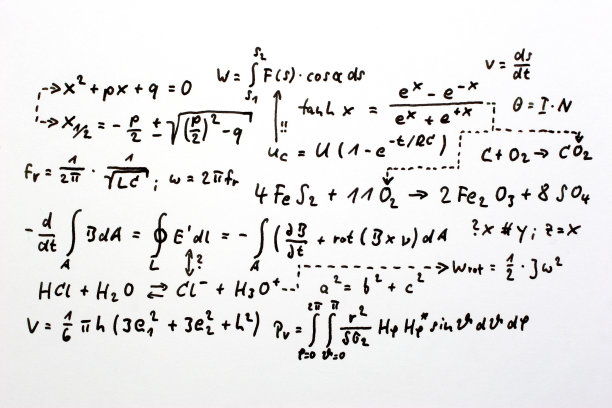 x² + px + q = 0
W = ∫_{s₁}^{s₂} F(s) · cos α ds
v = ds/dt
x_{1/2} = - p/2 ± √((p/2)² - q)
!!
tanh x = (e^x - e^{-x})/(e^x + e^{+x})
Θ = I · N
u_C = U (1 - e^{-t/RC})
C + O₂ → CO₂
f_r = 1/2π · 1/√LC ; ω = 2πf_r
4 FeS₂ + 11 O₂ → 2 Fe₂O₃ + 8 SO₄
- d/dt ∫_A B dA = ∮_L E' dl = - ∫_A (∂B/∂t + rot (B x v) dA
?x # y ; z = x
?
W_rot = 1/2 · J ω²
HCl + H₂O ⇌ Cl⁻ + H₃O⁺
a² = b² + c²
V = 1/6 π h (3e₁² + 3e₂² + h²)
P_v = ∫_{φ=0}^{2π} ∫_{ϑ=0}^{π} r²/δσ₂ Hφ Hφ* sin ϑ dϑ dφ